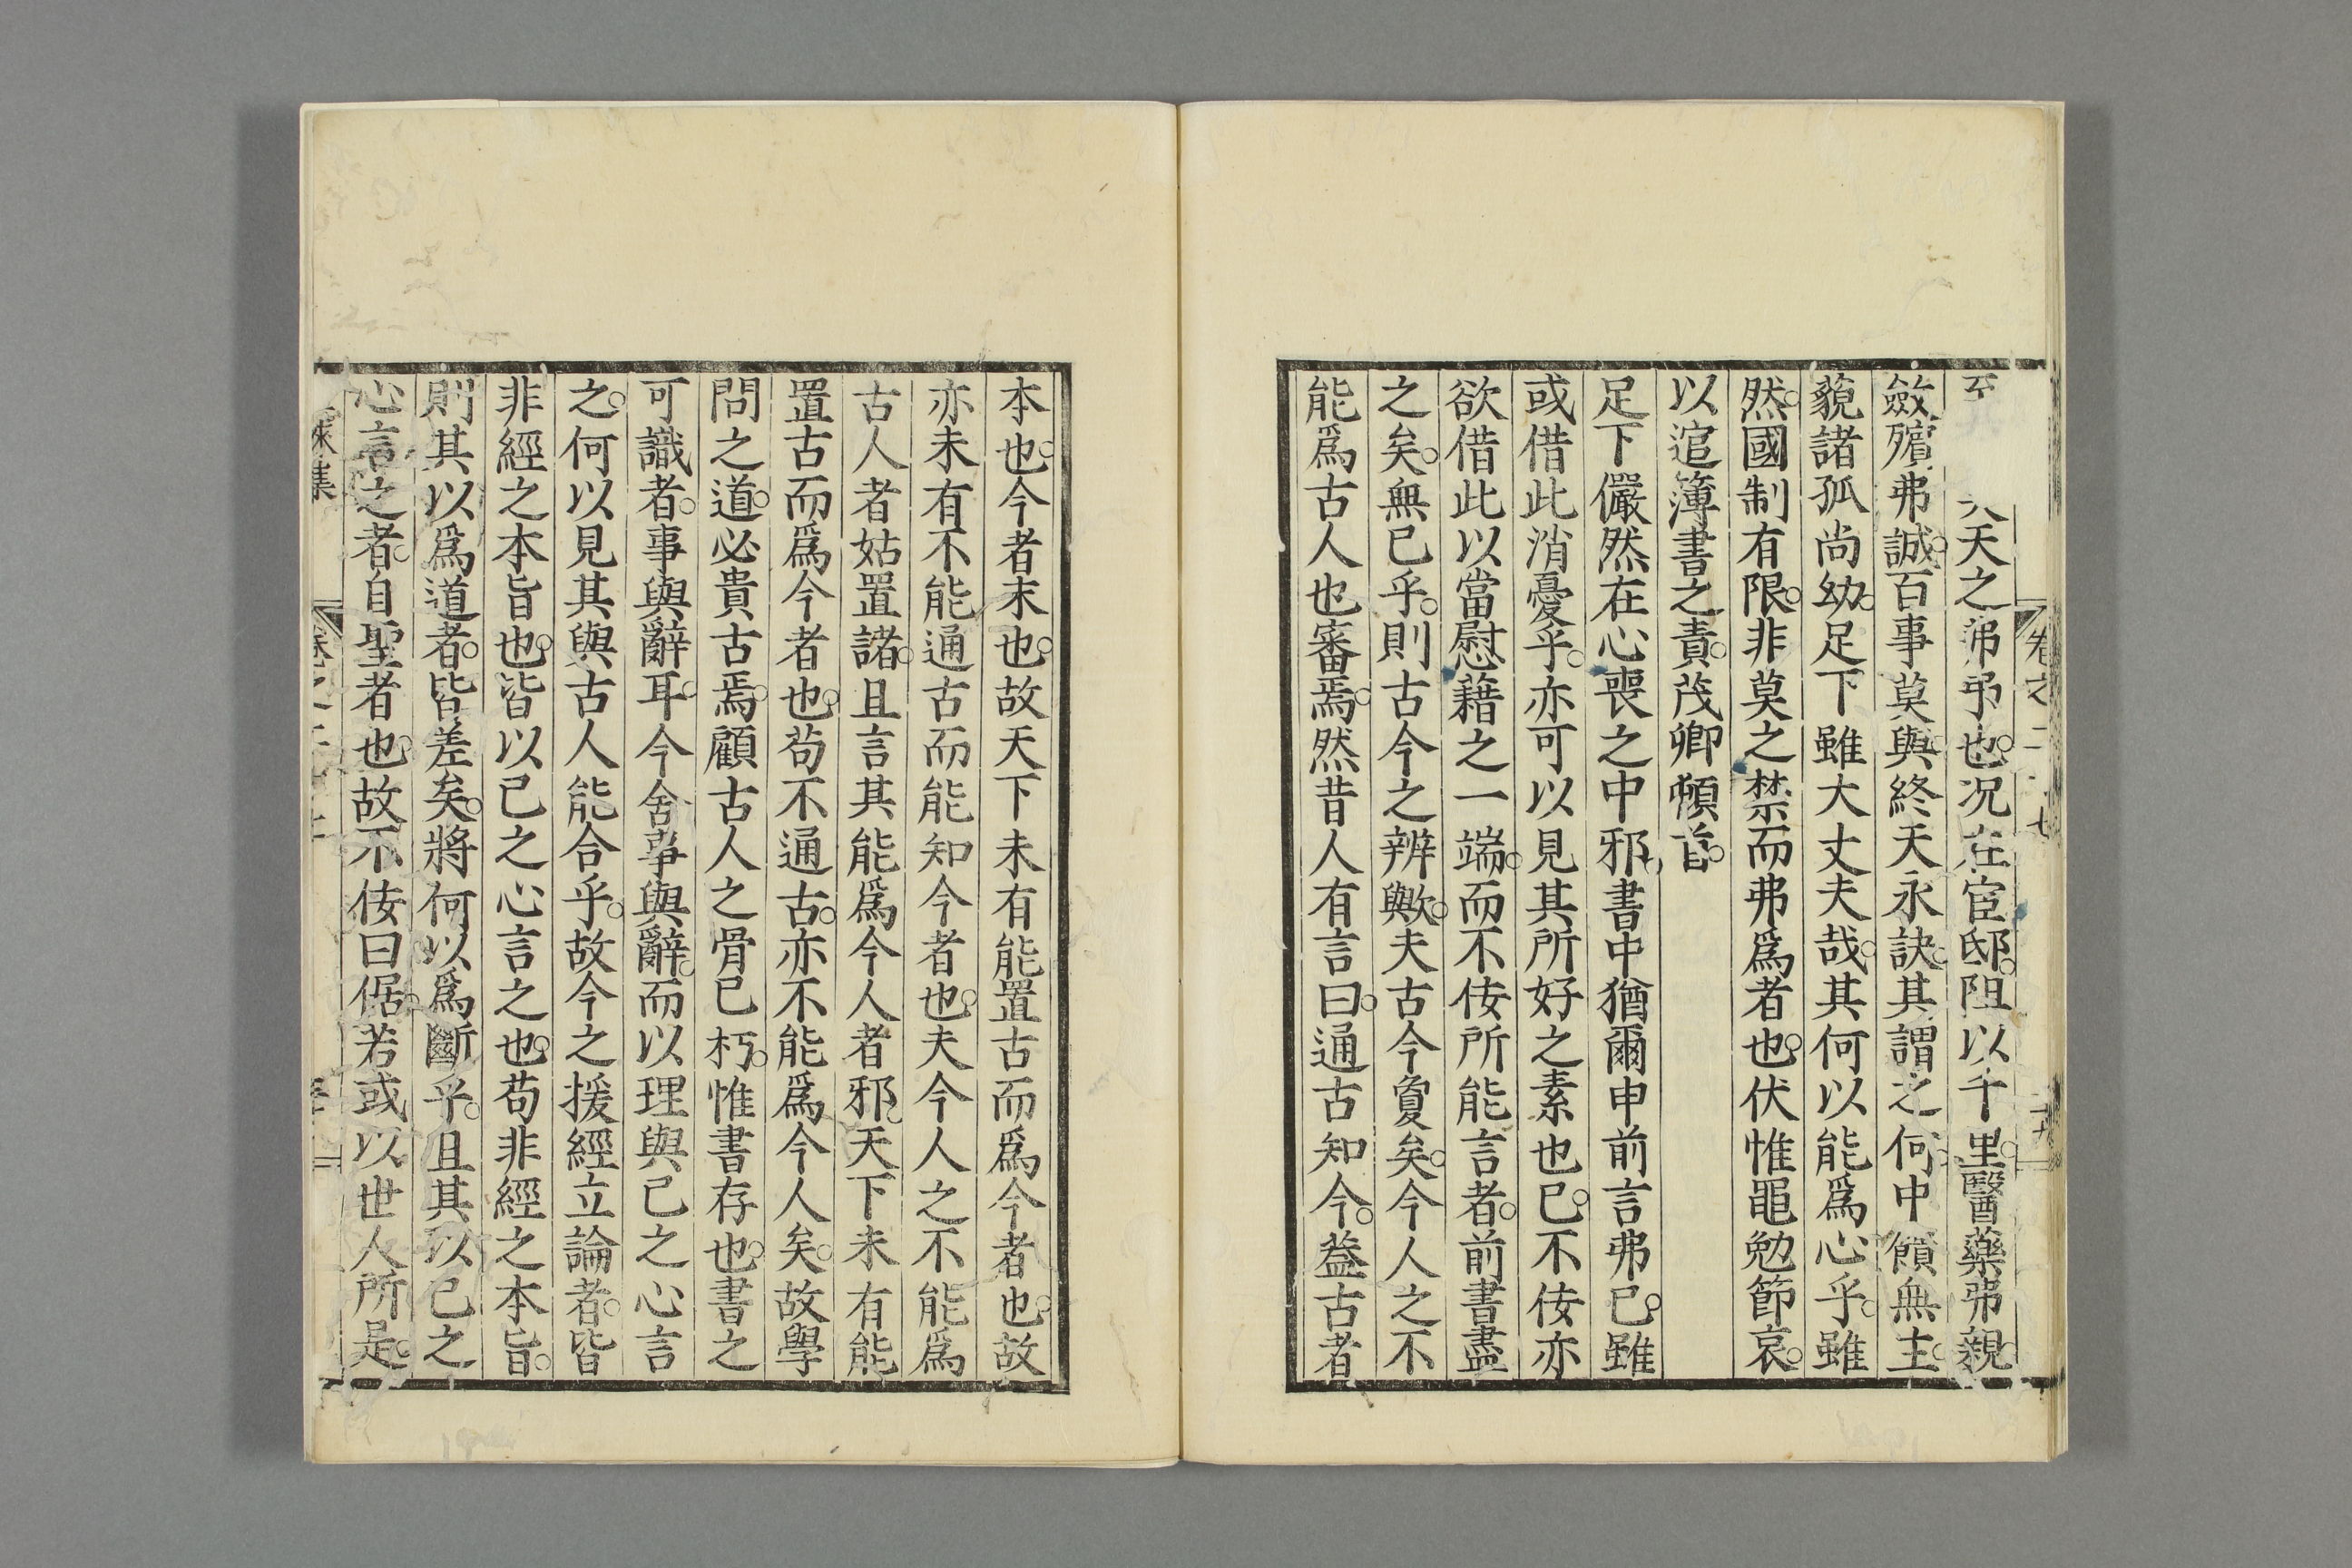 至天之弗弔也况在宦邸阻以千里醫藥弗親
斂殯弗誠百事莫與終天永訣其謂之何中饋無主
藐諸孤尚幼足下雖大丈夫哉其何以能爲心乎雖
然國制有限非莫之禁而弗爲者也伏惟黽勉節哀
以逭簿書之責茂卿頓首
足下儼然在心喪之中邪書中猶爾申前言弗已雖
或借此消憂乎亦可以見其所好之素也已不佞亦
欲借此以當慰藉之一端而不佞所能言者前書盡
之矣無已乎則古今之辨歟夫古今夐矣今人之不
能爲古人也審焉然昔人有言曰通古知今葢古者
本也今者末也故天下未有能置古而爲今者也故
亦未有不能通古而能知今者也夫今人之不能爲
古人者姑置諸且言其能爲今人者邪天下未有能
置古而爲今者也茍不通古亦不能爲今人矣故學
問之道必貴古焉顧古人之骨已朽惟書存也書之
可識者事與辭耳今舍事與辭而以理與己之心言
之何以見其與古人能合乎故今之援經立論者皆
非經之本旨也皆以己之心言之也茍非經之本旨
則其以爲道者皆差矣將何以爲斷乎且其以己之
心言之者自聖者也故不佞曰倨若或以世人所是